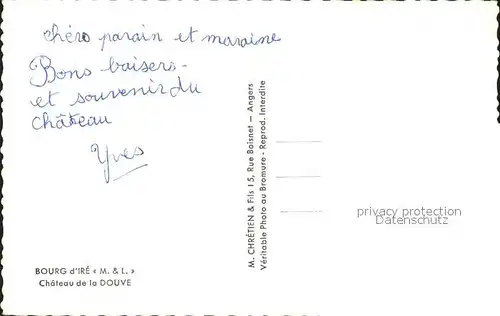 chers parain et maraine
Bons baisers -
et souvenir du
château
Yves
BOURG d'IRÉ « M. & L. »
Château de la DOUVE
M. CHRÉTIEN & Fils 15, Rue Boisnet — Angers
Véritable Photo au Bromure - Reprod. Interdite
privacy protection
CARDMAPR.NL